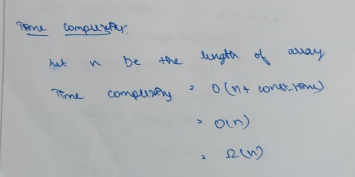 Time Complexity:
Let n be the length of array
Time complexity = O(n + const.time)
= O(n)
= Ω(n)